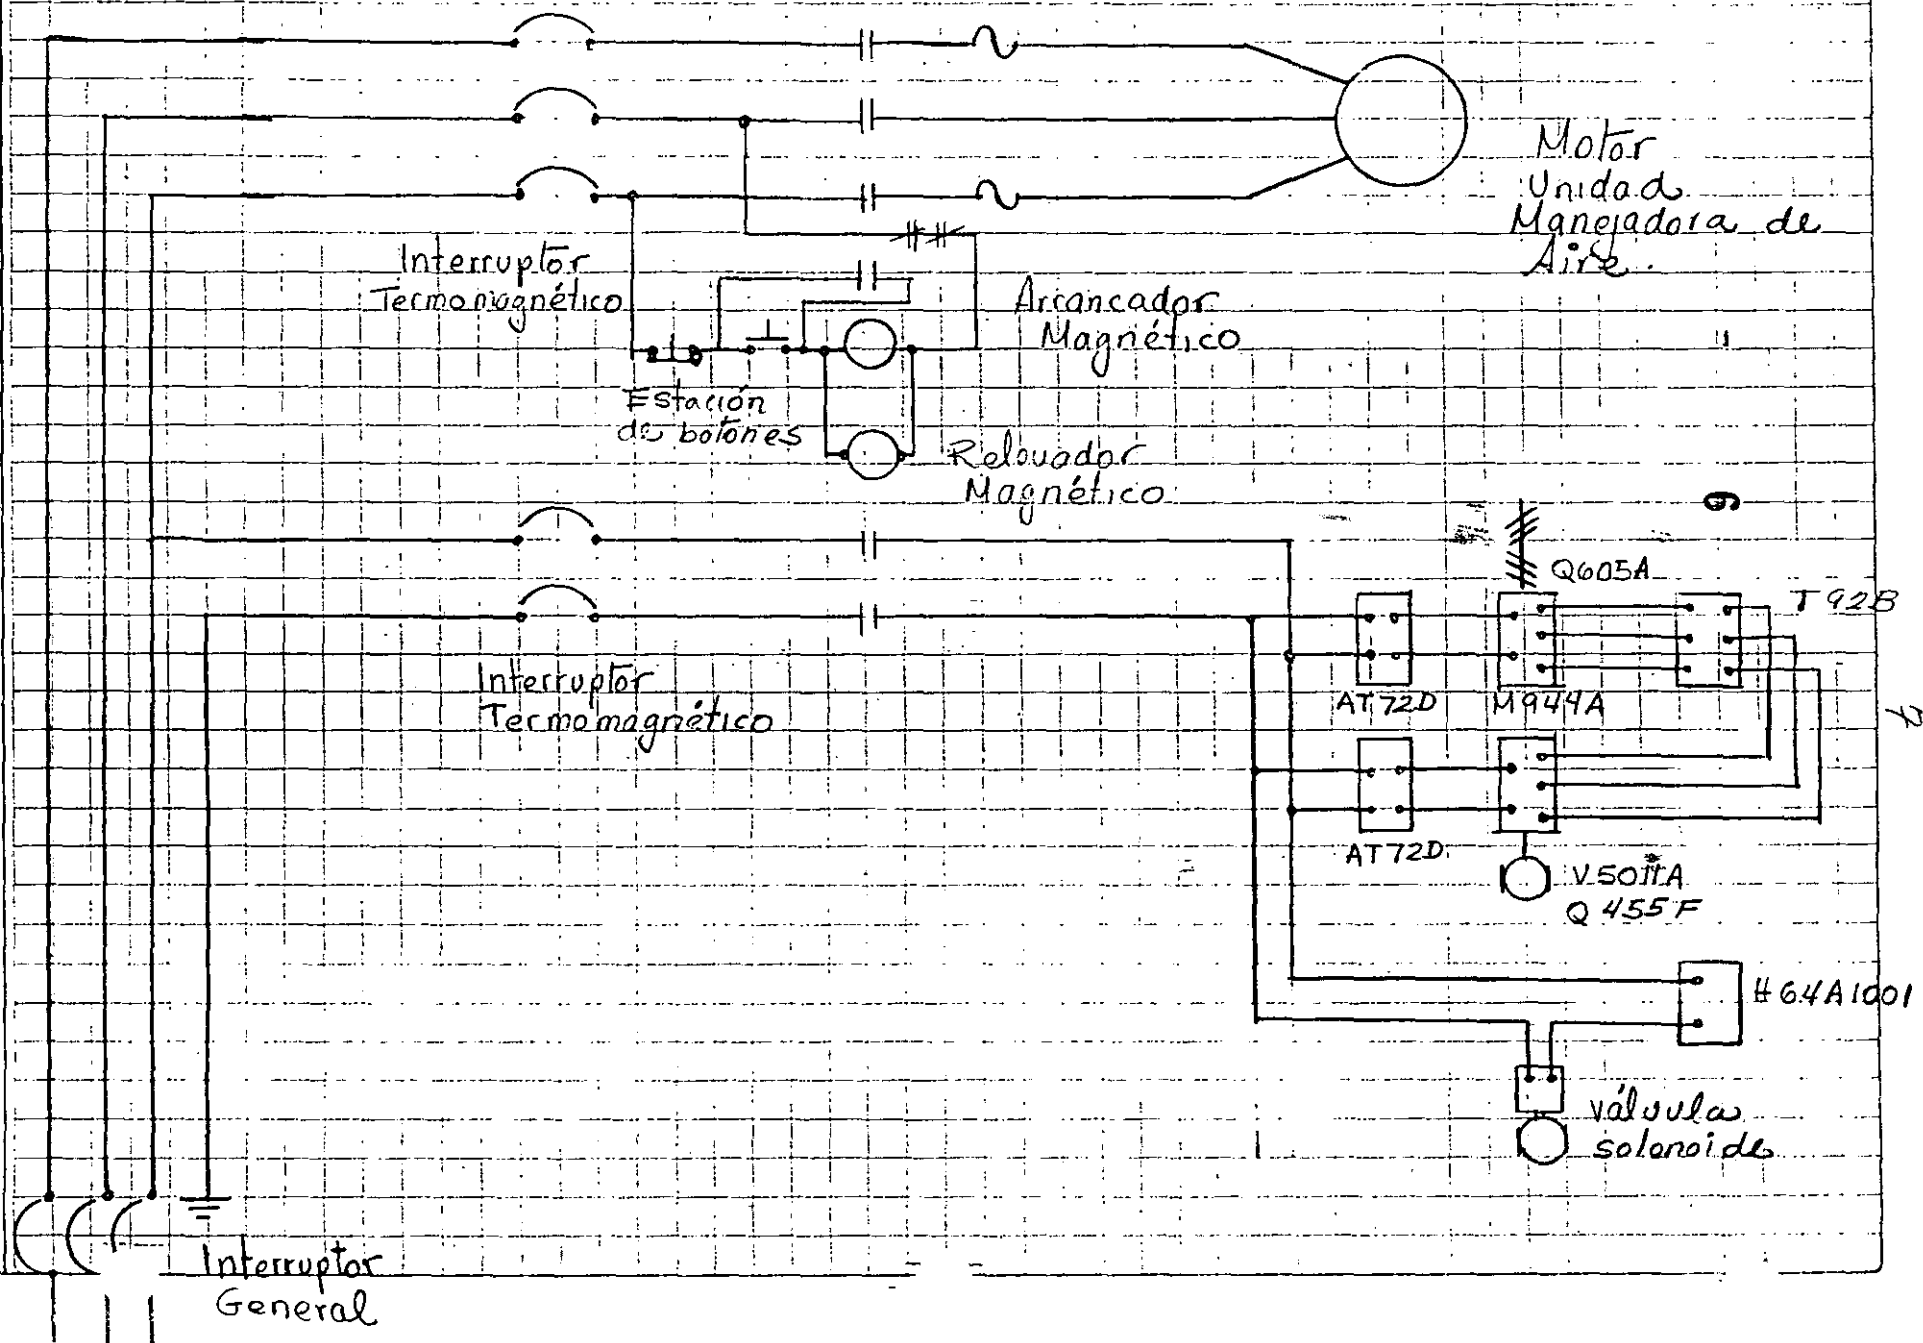 Motor
Unidad
Manejadora de
Aire.
Interruptor
Termomagnético
Arrancador
Magnético
Estación
de botones
Relevador
Magnético
Q605A
T92B
Interruptor
Termomagnético
AT72D
M944A
7
AT72D
V5011A
Q455F
H64A1001
válvula
solonoide
Interruptor
General